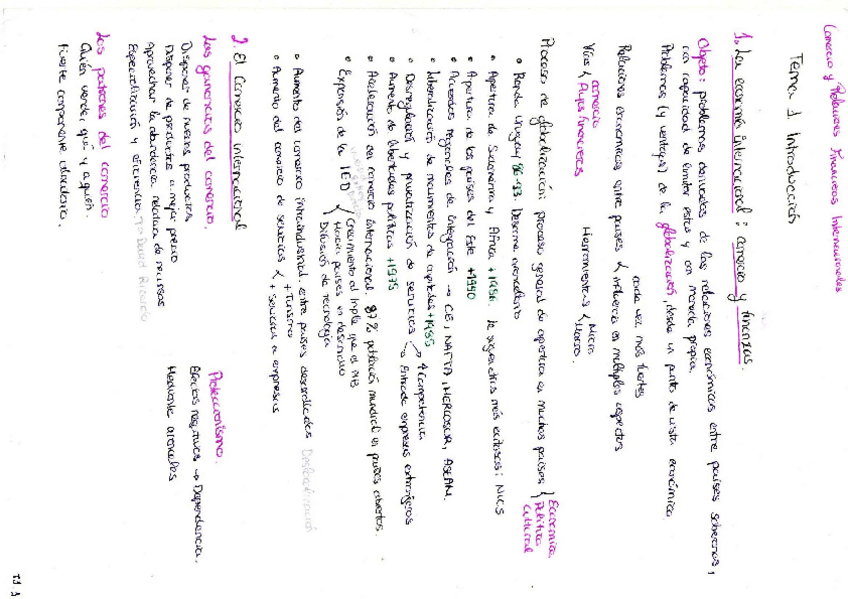 Comercio y Relaciones Financieras Internacionales
Tema 1 Introducción
1. La economía internacional: comercio y finanzas.
Objeto: problemas derivados de las relaciones económicas entre países soberanos,
con capacidad de emitir estos y con moneda propia.
Problemas (y ventajas) de la globalización, desde un punto de vista económico
cada vez más fuertes
Relaciones económicas entre países { influencia en múltiples aspectos
Vías { comercio
Flujos financieros
Herramientas { Micro
Macro.
Proceso de globalización: proceso general de apertura en muchos países { Económica
Política
Cultural
• Ronda Uruguay 86-93. Desarme arancelario
• Apertura de Sudamérica y África +1980. le siguen otros más exitosos: NICS
• Apertura de los países del Este +1990
• Acuerdos regionales de integración → CE, NAFTA, MERCOSUR, ASEAN.
• Liberalización de movimientos de capitales +1985
• Desregulación y privatización de servicios → ↑ Competencia
→ Entrada empresas extranjeras
• Aumento de libertades políticas +1975
• Aceleración en comercio internacional. 87% población mundial en países abiertos.
• Expansión de la IED { Crecimiento al triple que el PIB
Hacia países en desarrollo
Difusión de tecnología
• Aumento del comercio intraindustrial. entre países desarrollados Deslocalización
• Aumento del comercio de servicios { + Turismo
+ Servicios a empresas
2. El Comercio internacional
Las ganancias del comercio.
Disponer de nuevos productos
Disponer de productos a mejor precio
Aprovechar la abundancia relativa de recursos
Especialización y eficiencia. Tª David Ricardo
Proteccionismo.
Efectos negativos → Dependencia.
Mediante aranceles
Los patrones del comercio
Quién vende, qué y a quién.
Fuerte componente aleatorio.